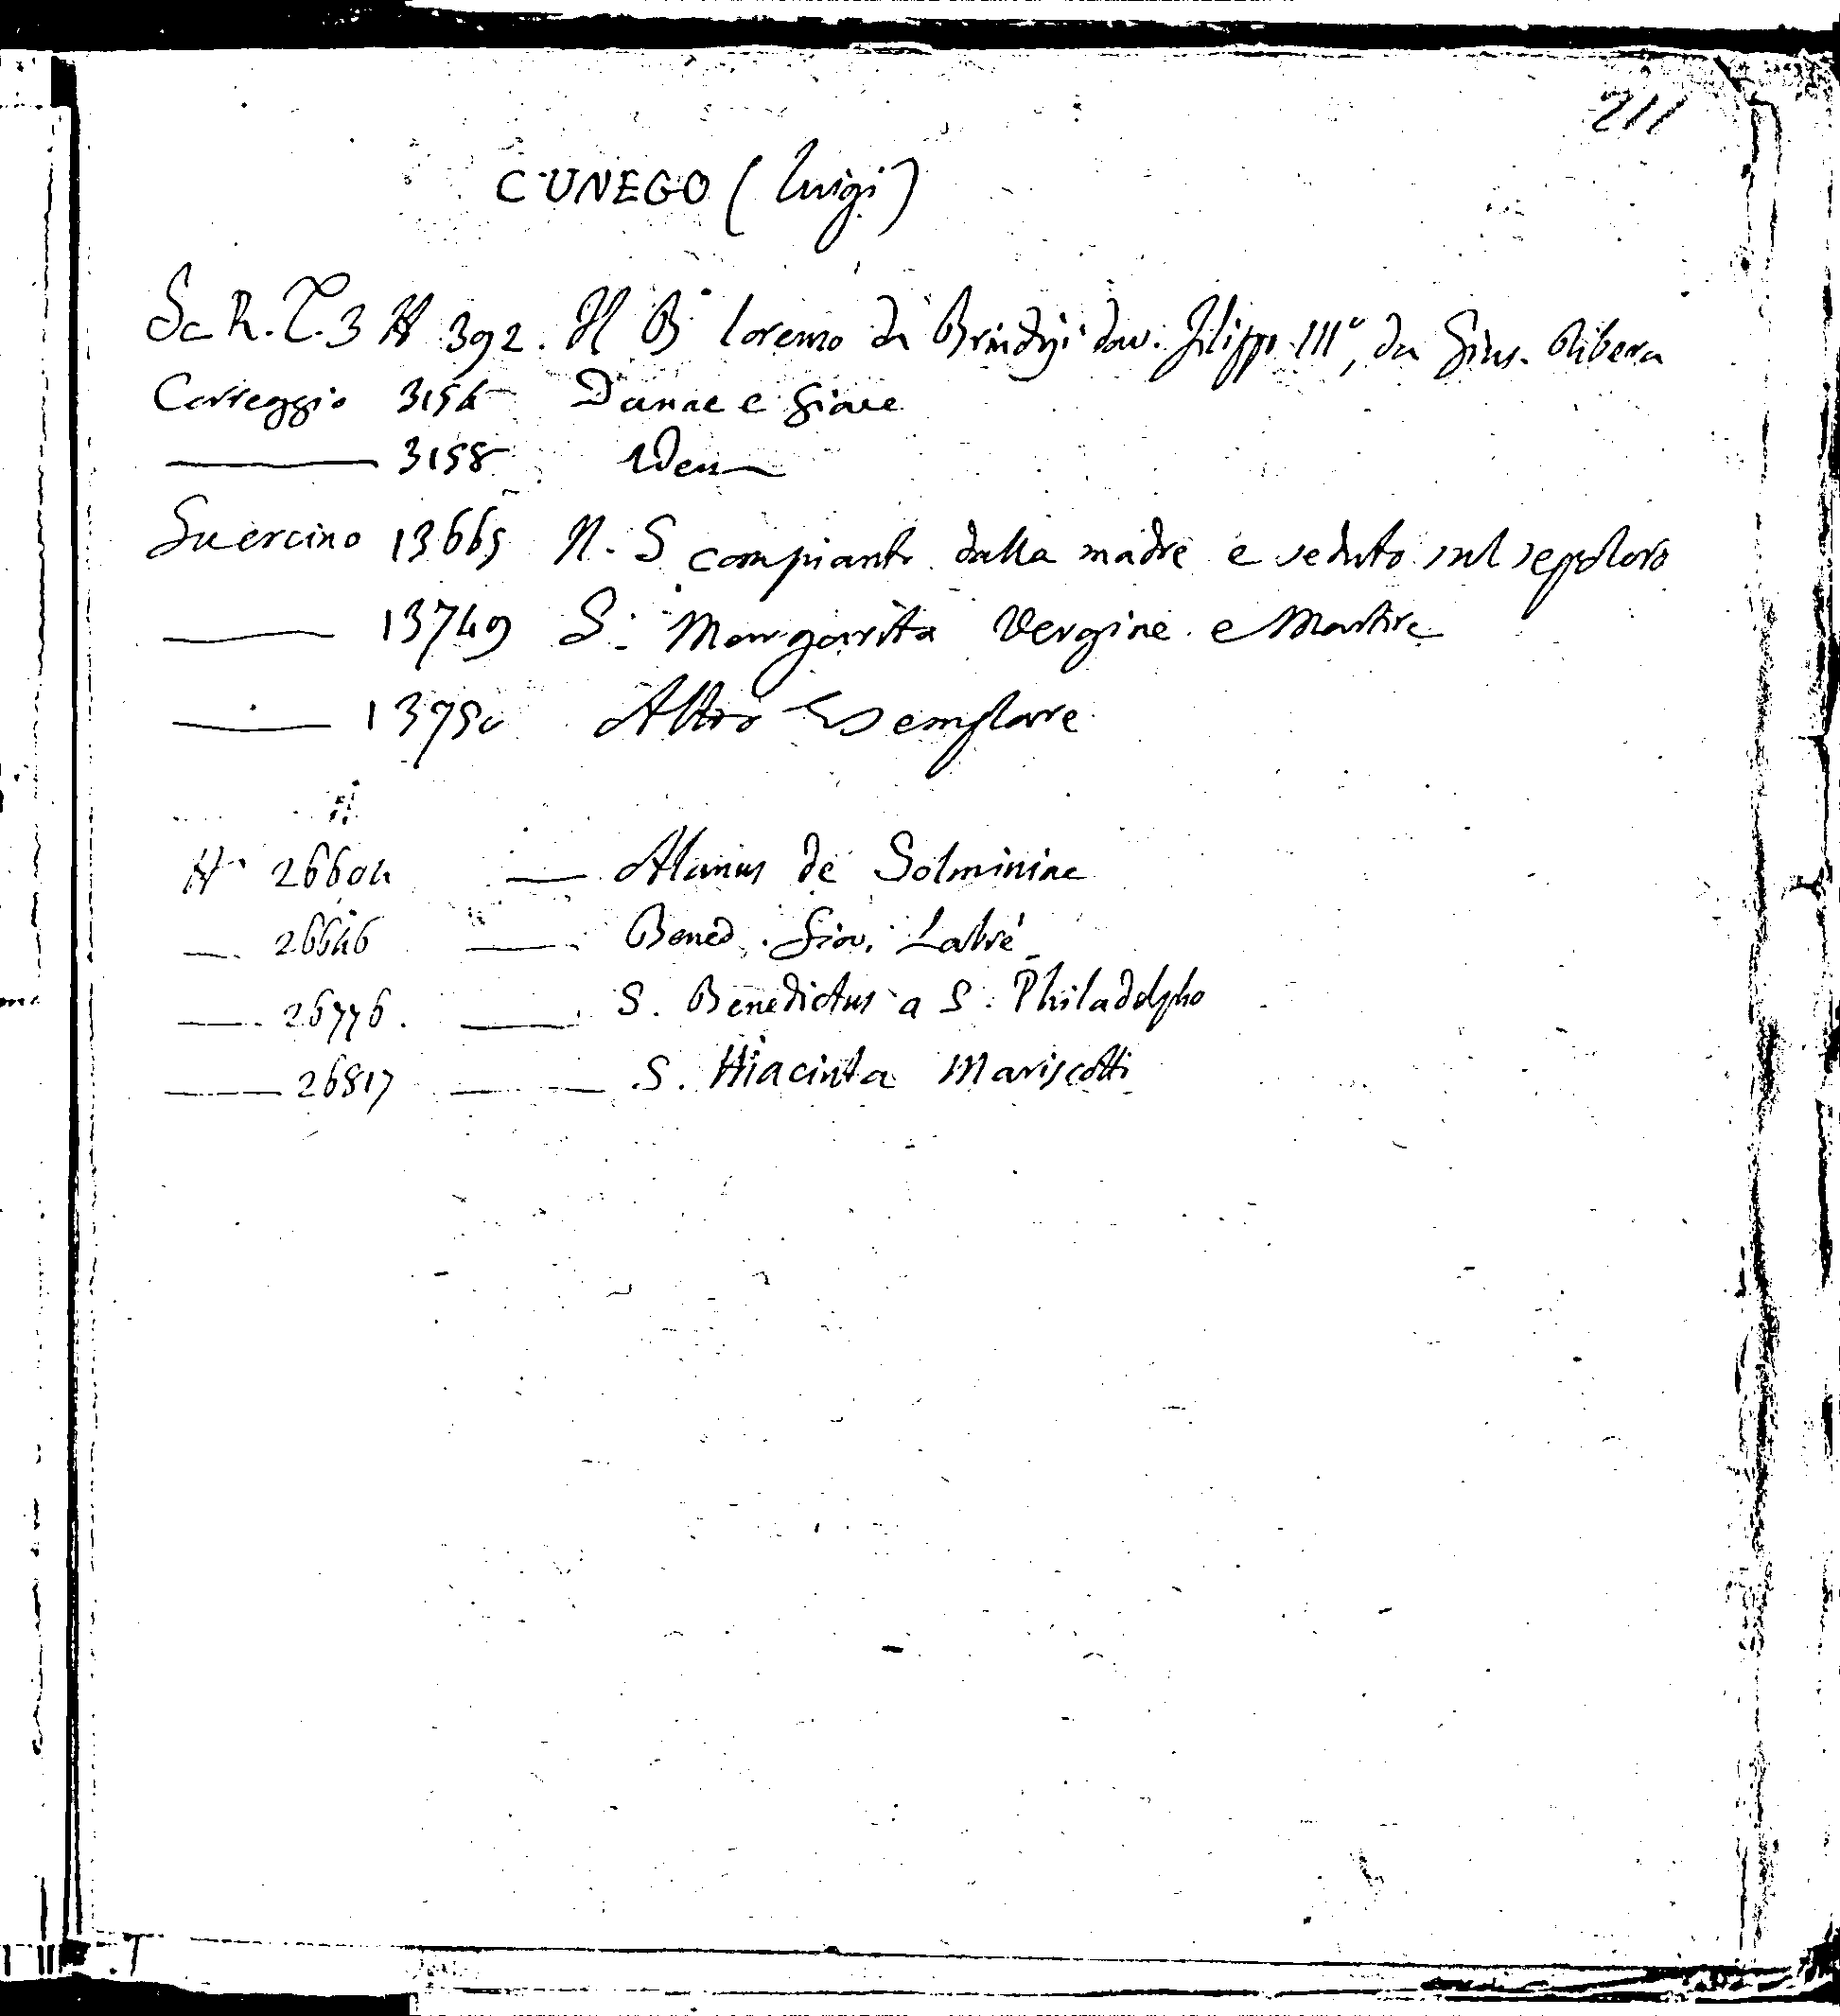 211
CUNEGO (Luigi)
Sc R. T. 3 N 392. Il B. Lorenzo da Brindisi dav. Filippo III°, da Gius. Ribera
Correggio 3154 Danae e Giove
—— 3158 Idem
Guercino 13665 N. S compianto dalla madre e seduto sul sepolcro
—— 13749 S. Margarita Vergine e Martire
—— 13750 Altro Esemplare
N. 26604 — Alanus de Solminiac
— 26646 — Bened. Giov. Labré
— 26776. — S. Benedictus a S. Philadelpho
— 26817 — S. Hiacinta Mariscotti